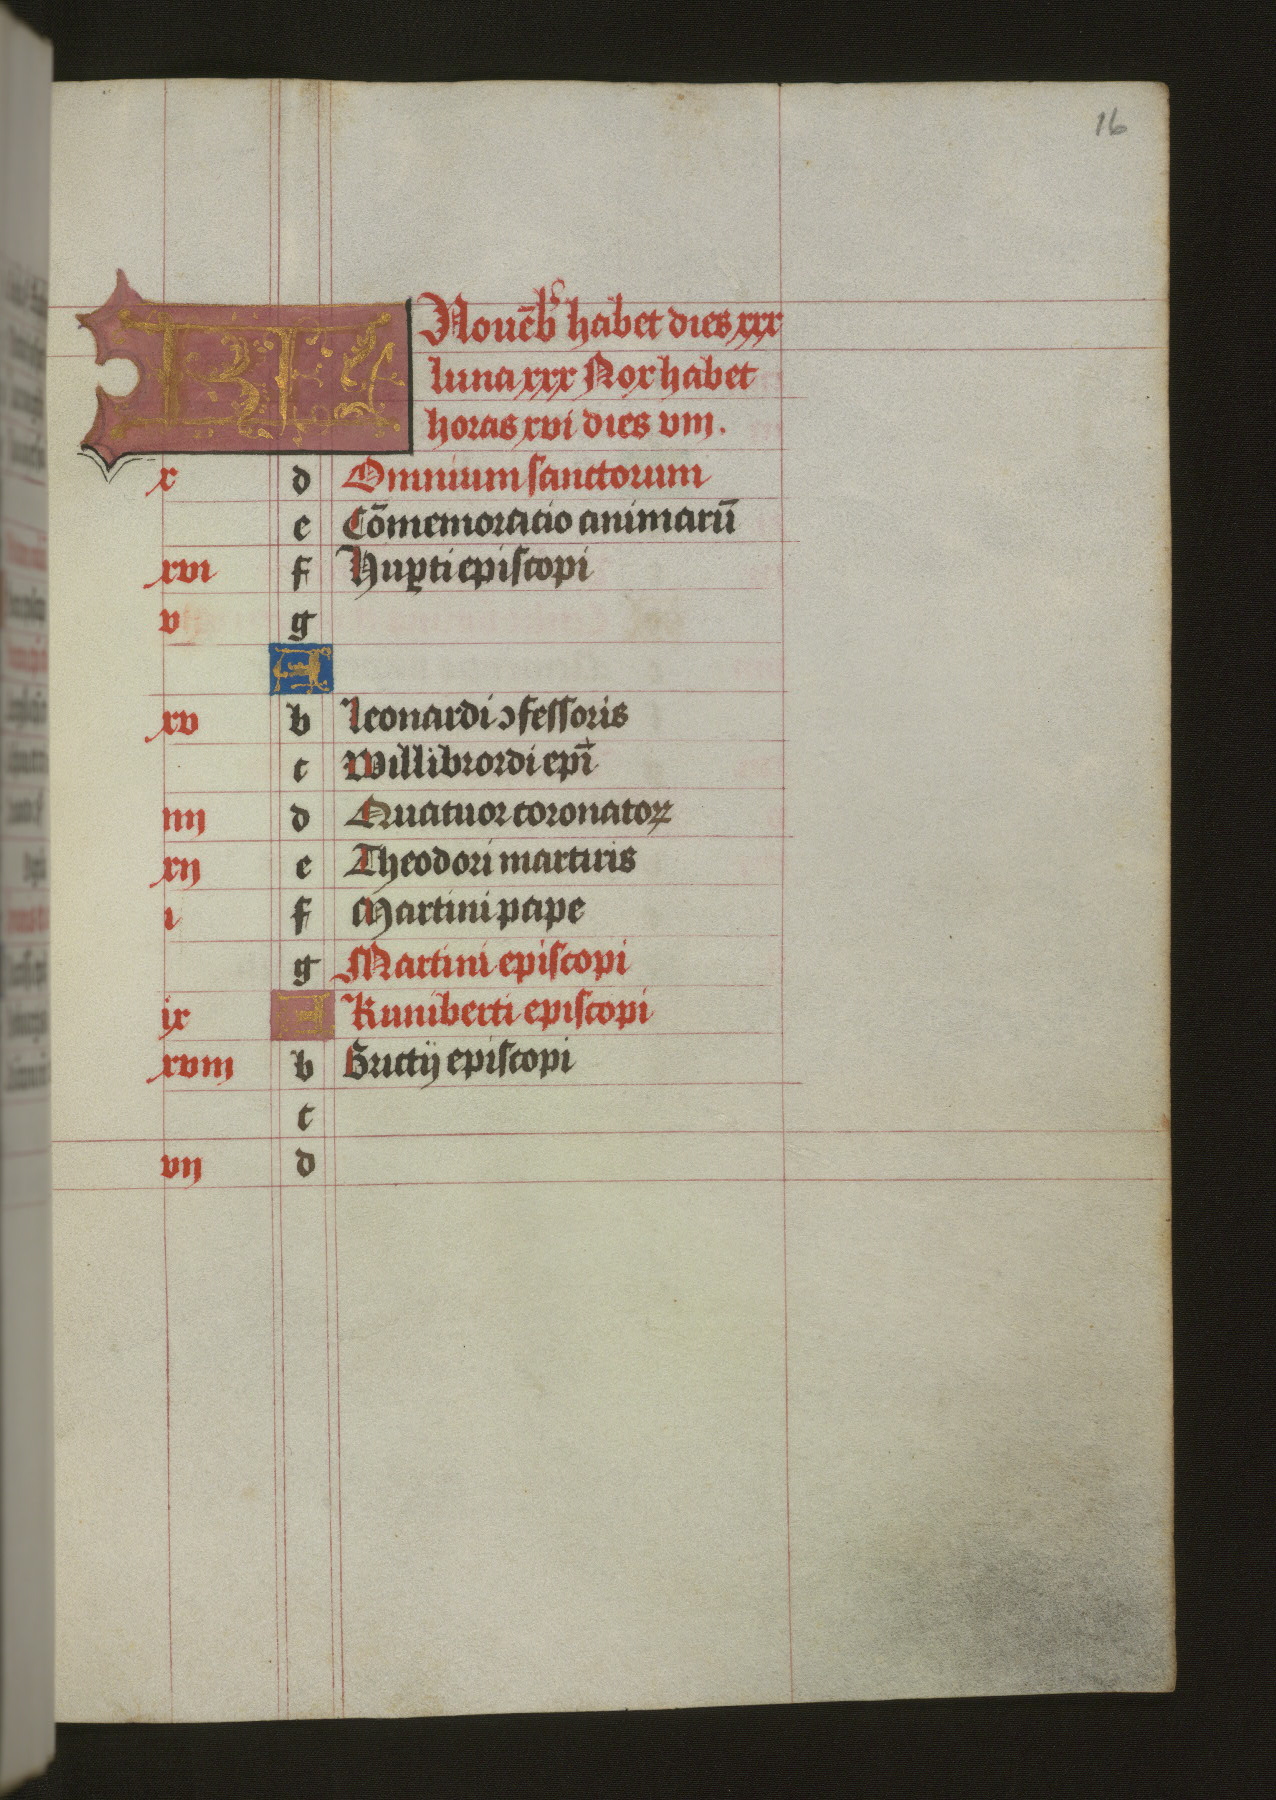 16
KL Nouēb' habet dies xxx
luna xxx Nox habet
horas xvi dies viij.
x d Omnium sanctorum
e Cōmemoracio animarū
xvi f Huꝑti episcopi
v g
A
xv b Leonardi ↄfessoris
c Willibrordi epī
iiij d Quatuor coronatoꝝ
xij e Theodori martiris
i f Martini pape
g Martini episcopi
ix A Kuniberti episcopi
xviij b Brictij episcopi
c
vij d